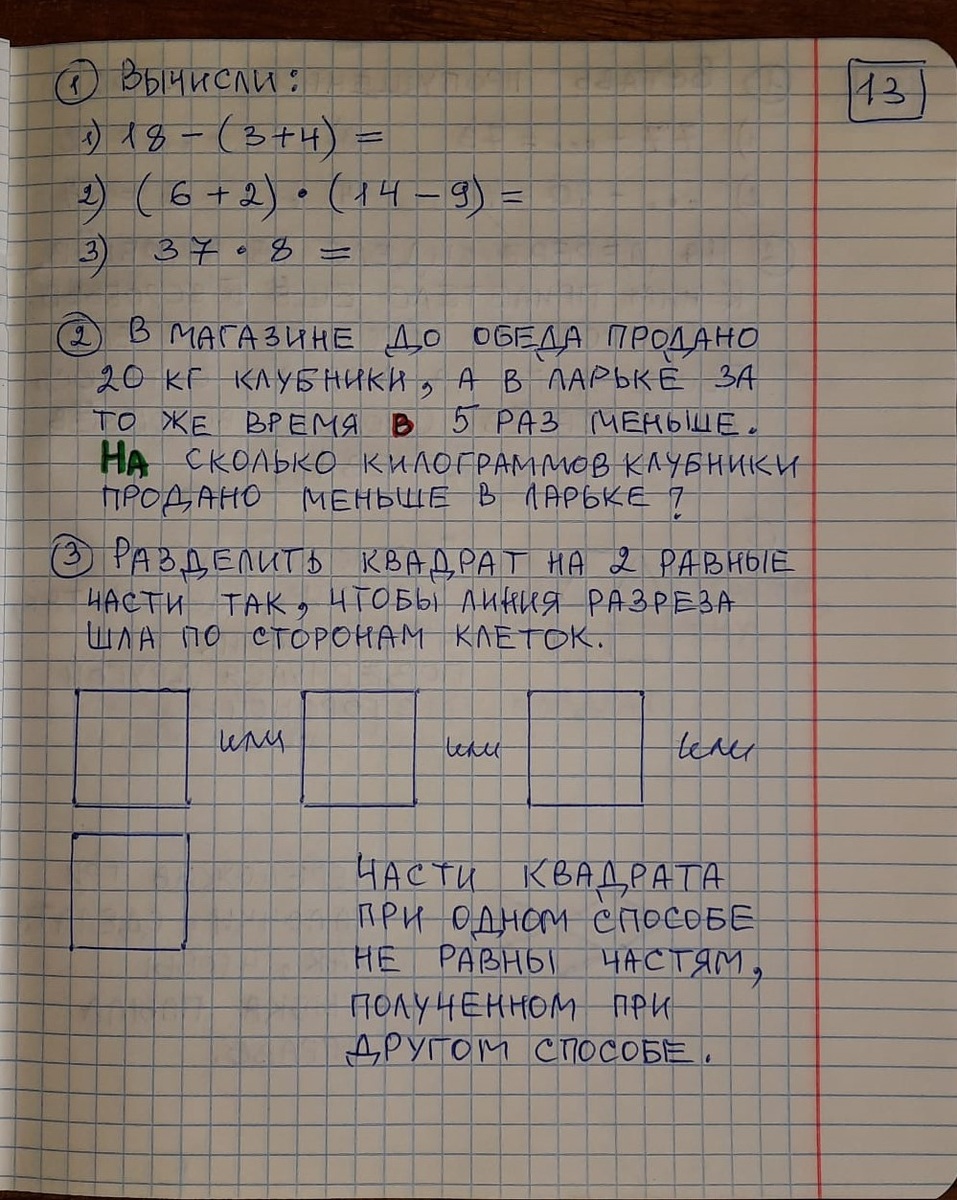 13
① Вычисли:
1) 18 - (3+4) =
2) (6+2) · (14-9) =
3) 37 · 8 =
② В МАГАЗИНЕ ДО ОБЕДА ПРОДАНО
20 КГ КЛУБНИКИ, А В ЛАРЬКЕ ЗА
ТО ЖЕ ВРЕМЯ В 5 РАЗ МЕНЬШЕ.
НА СКОЛЬКО КИЛОГРАММОВ КЛУБНИКИ
ПРОДАНО МЕНЬШЕ В ЛАРЬКЕ?
③ РАЗДЕЛИТЬ КВАДРАТ НА 2 РАВНЫЕ
ЧАСТИ ТАК, ЧТОБЫ ЛИНИЯ РАЗРЕЗА
ШЛА ПО СТОРОНАМ КЛЕТОК.
или или или
ЧАСТИ КВАДРАТА
ПРИ ОДНОМ СПОСОБЕ
НЕ РАВНЫ ЧАСТЯМ,
ПОЛУЧЕННОМ ПРИ
ДРУГОМ СПОСОБЕ.